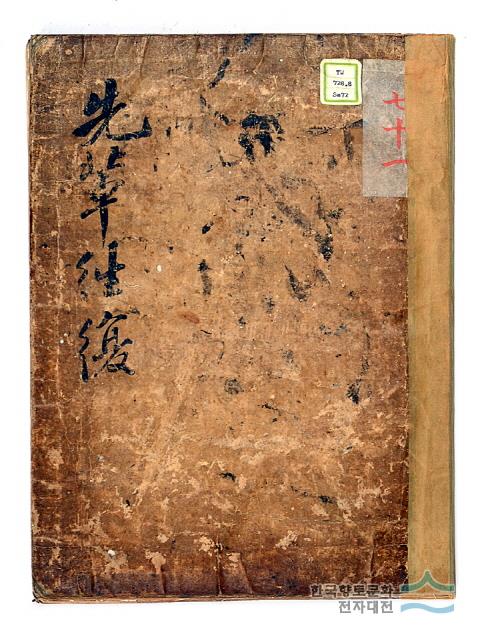 先輩往復
TW
728.8
Se72
七十一
한국향토문화
전자대전